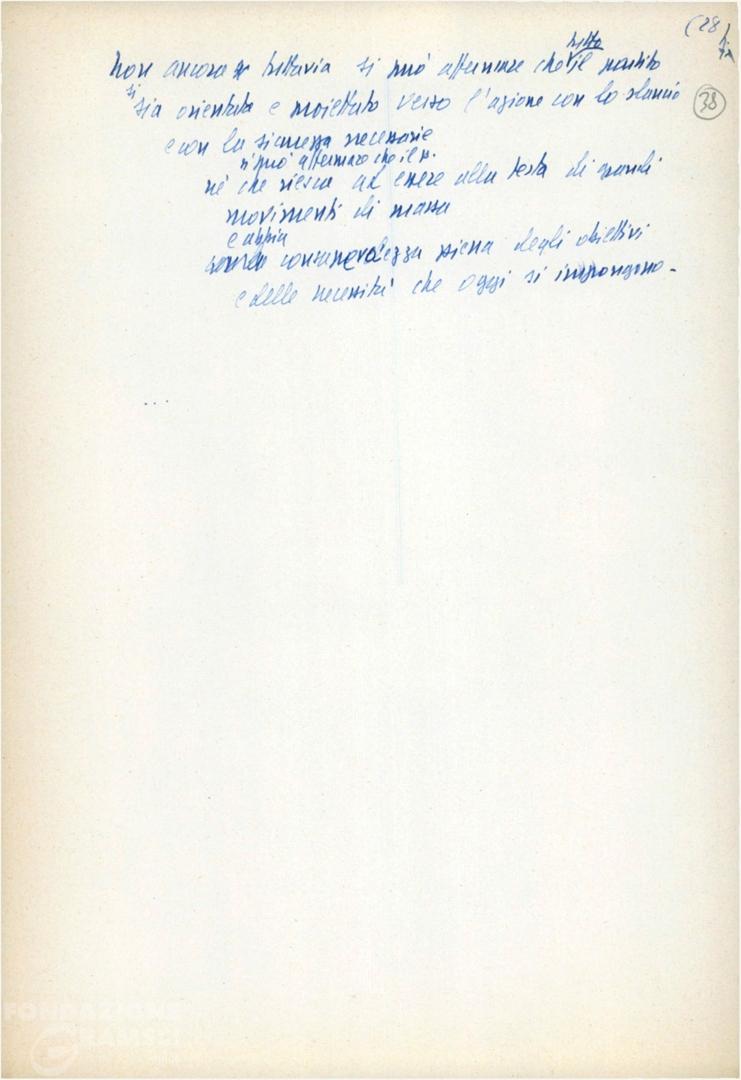 (28
38
tutto
Non ancora tuttavia si può affermare che il partito
si
sia orientato e proiettato verso l'azione con lo slancio
e con la sicurezza necessarie
si può affermare che il p.
né che riesca ad essere alla testa di grandi
movimenti di massa
e abbia
consapevolezza piena degli obiettivi
e delle necessità che oggi si impongono -
...
FONDAZIONE
GRAMSCI